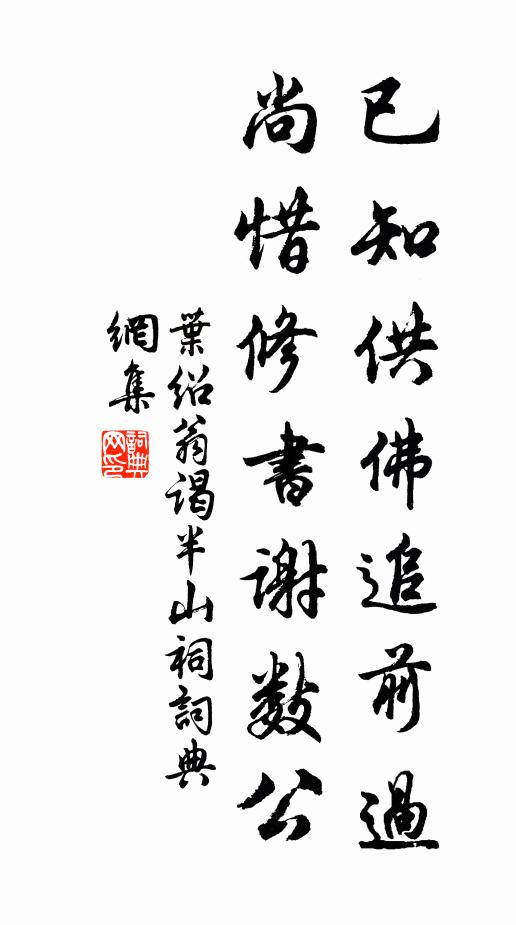 已知供佛追前過
尚惜修書謝數公
葉紹翁謁半山祠詞典
網集
詞典網印